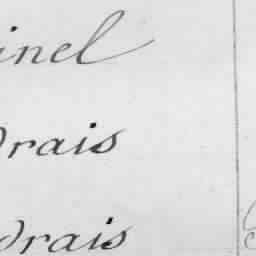 inel
drais
drais